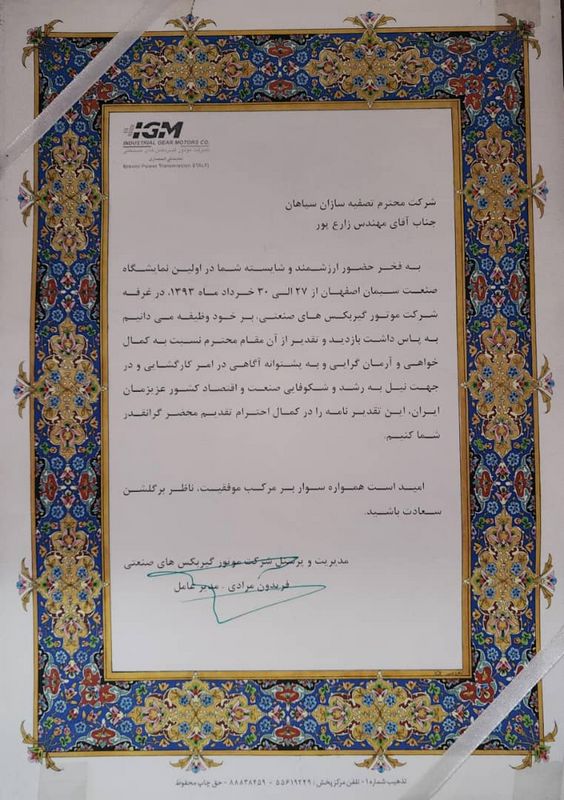 IGM
INDUSTRIAL GEAR MOTORS CO.
شرکت موتور گیربکس های صنعتی
نمایندگی انحصاری
Power Transmission (ITALY)
شرکت محترم تصفیه سازان سپاهان
جناب آقای مهندس زارع پور
به فخر حضور ارزشمند و شایسته شما در اولین نمایشگاه
صنعت سیمان اصفهان از ۲۷ الی ۳۰ خرداد ماه ۱۳۹۳، در غرفه
شرکت موتور گیربکس های صنعتی، بر خود وظیفه می دانیم
به پاس داشت بازدید و تقدیر از آن مقام محترم نسبت به کمال
خواهی و آرمان گرایی و به پشتوانه آگاهی در امر کارگشایی و در
جهت نیل به رشد و شکوفایی صنعت و اقتصاد کشور عزیزمان
ایران، این تقدیر نامه را در کمال احترام تقدیم محضر گرانقدر
شما کنیم.
امید است همواره سوار بر مرکب موفقیت، ناظر برگلشن
سعادت باشید.
مدیریت و پرسنل شرکت موتور گیربکس های صنعتی
فریدون مرادی - مدیر عامل
تذهیب شماره ۱ - تلفن مرکز پخش: ۵۵۶۱۹۲۲۹ - ۸۸۸۳۸۴۵۹ - حق چاپ محفوظ